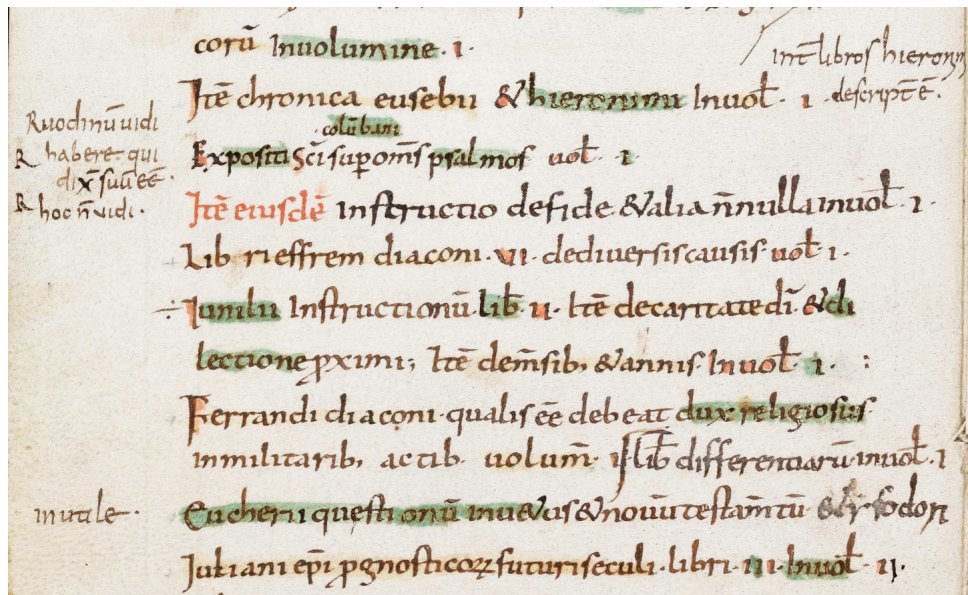 corū Inuolumine · i ·
Int̄ libros hieronȳ
Itē chronica eusebii & hieronimi In uol̄ · i ·
descript̄ ē ·
Ruodinū uidi
colūbani
R habere · qui
Expositi Sc̄i sup om̄s psalmos uol̄ · i ·
dix̄ suū eē ·
R hoc n̄ uidi ·
Itē eiusdē instructio de fide · & alia n̄nulla in uol̄ · i ·
Lib ri effrem diaconi · vi · de diuersis causis · uol̄ · i ·
÷ Iunilii Instructionū · lib̄ · ii · Itē de caritate dī · & di
lectione pximi; Itē dem̄sib; & annis · In uol̄ · i · :
Ferrandi diaconi · qualis eē debeat dux religiosus
in militarib; actib · uolum̄ · i lib̄ differentiarū in uol̄ · i
inutile ·
Eucherii questionū in u&us & nouū testam̄tū
Iuliani ep̄i pgnosticoꝝ futuri seculi · libri · iii · In uol̄ · ii ·